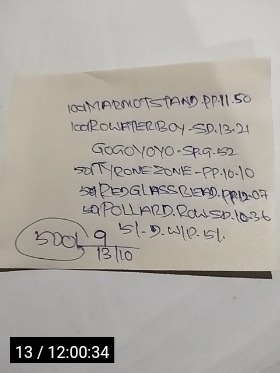 100 MARMOTSTAND.PP.11.50
100 ROWATERBOY-SD.13.21
GOGOYOYO.SP.9.52
50 TYRONEZONE-PP.10.10
50 REDGLASSBEAD.PP.12.07
50 POLLARD.ROW SD.10.36
5/-D.W/D.5/.
500/ 9
13/10
13 / 12:00:34